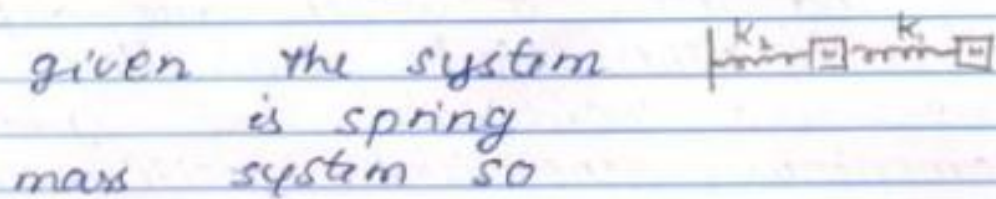 given the system K₂ K₁
is spring
mass system so